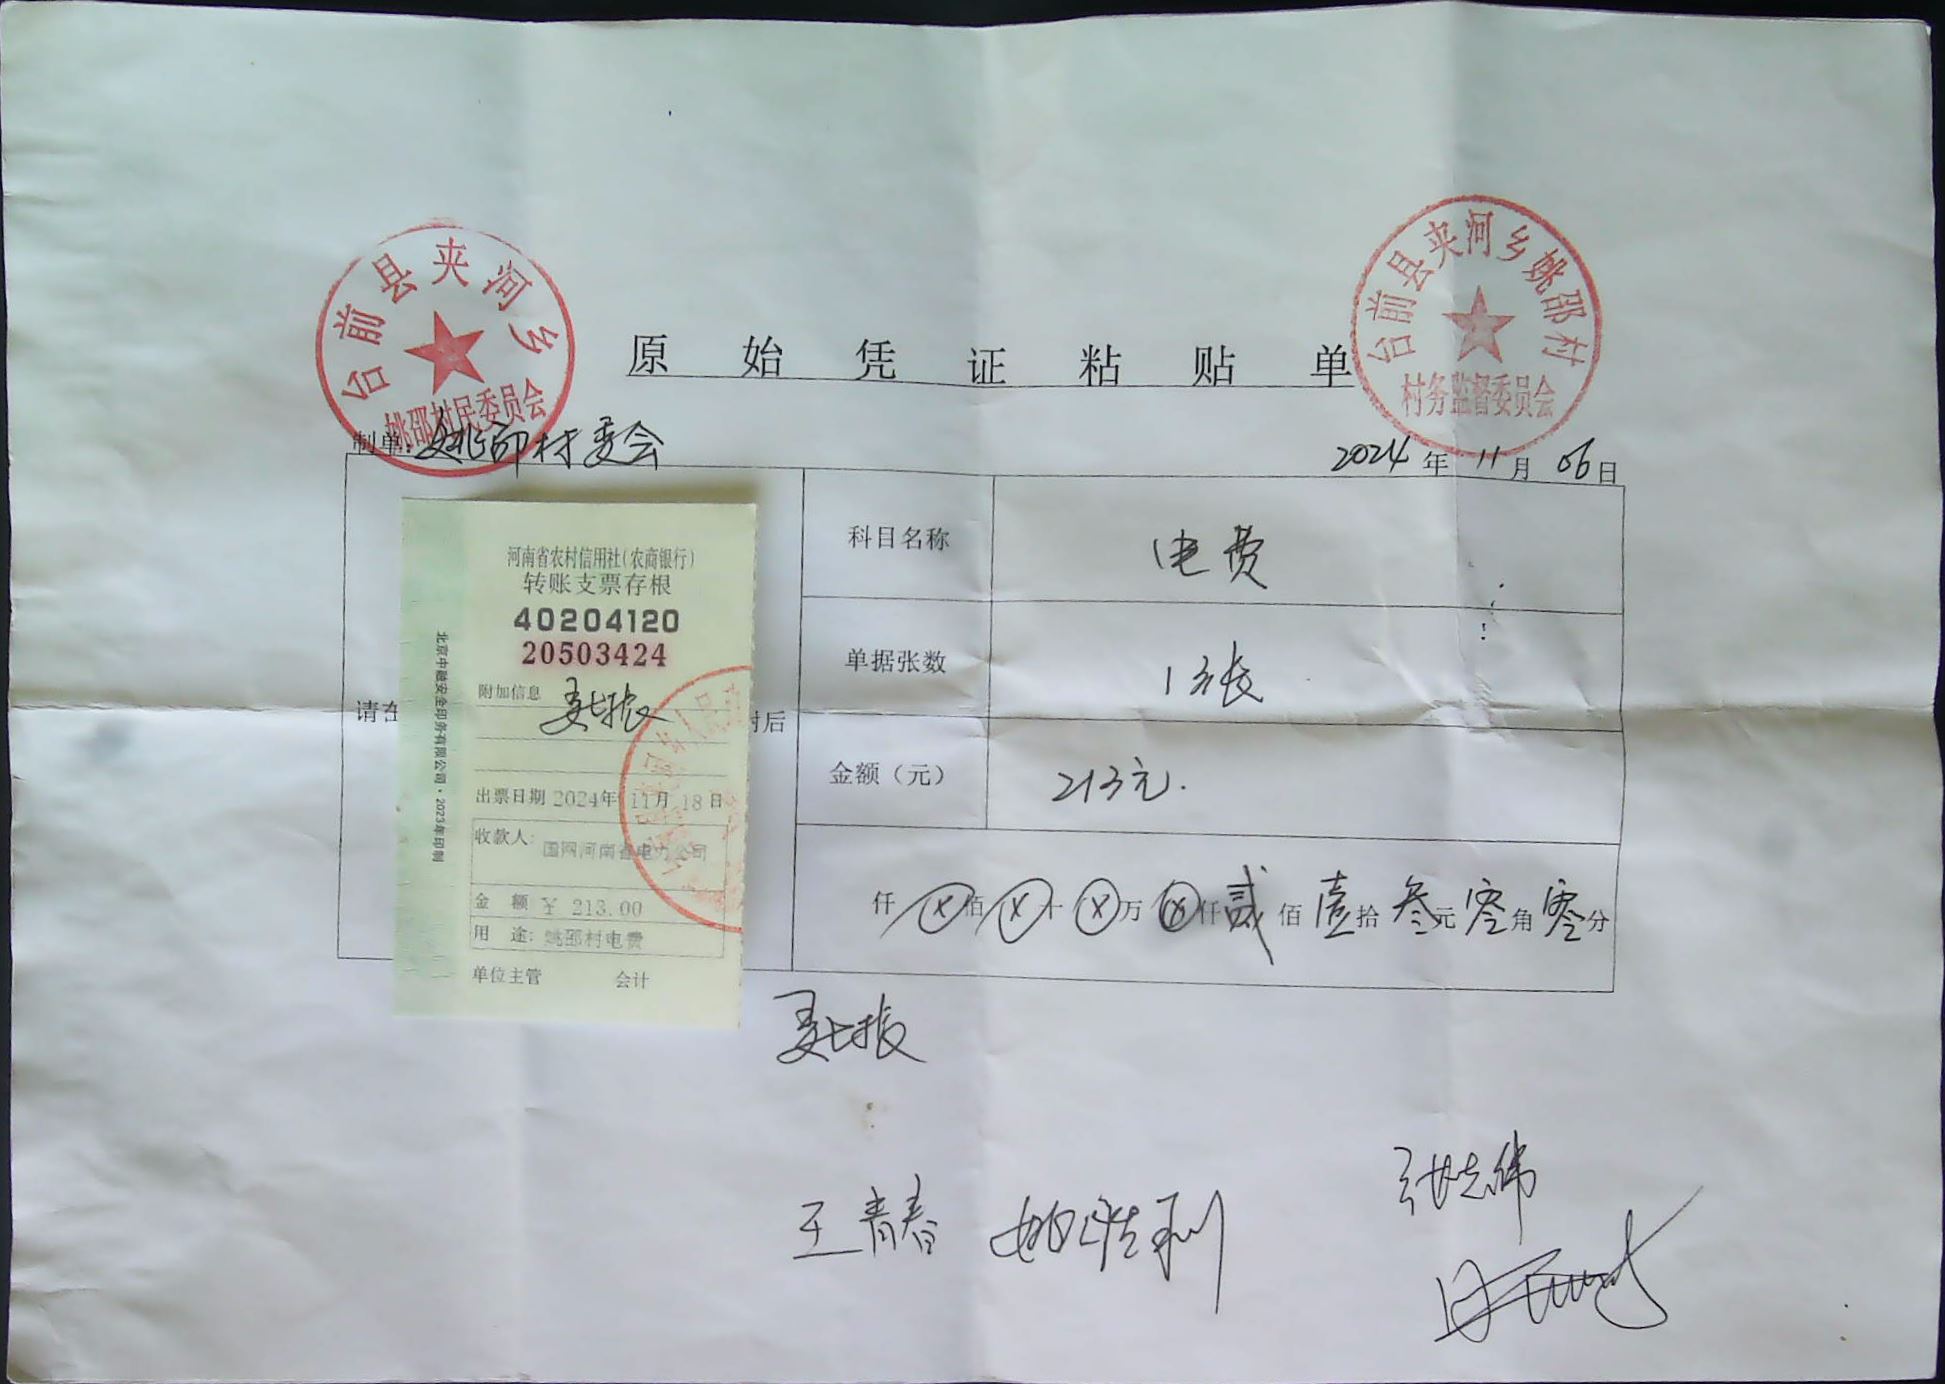 台前县夹河乡
姚邵村民委员会
台前县夹河乡姚邵村
村务监督委员会
原始凭证粘贴单
制单：姚邵村委会
2024年11月06日
科目名称 电费
单据张数 1张
金额（元） 213元.
仟ⓧ佰ⓧ十ⓧ万ⓧ仟贰佰壹拾叁元零角零分
请在
后
河南省农村信用社(农商银行)
转账支票存根
40204120
20503424
附加信息
出票日期 2024年 11月 18日
收款人: 国网河南省电力公司
金 额 ¥ 213.00
用 途: 姚邵村电费
单位主管 会计
北京中融安全印务有限公司·2023年印制
王青春 姚胜利
张志伟